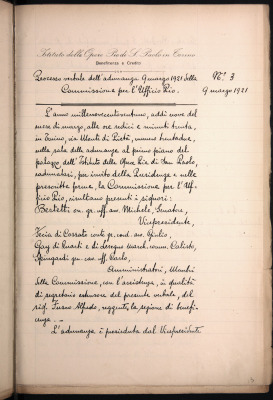 Istituto delle Opere Pie di S. Paolo in Torino
Beneficenza e Credito
Processo verbale dell'adunanza 9 marzo 1921 della
Commissione per l'Ufficio Pio.
N.° 3
9 marzo 1921
L'anno millenovecentoventuno, addì nove del
mese di marzo, alle ore sedici e minuti trenta,
in Torino, via Monte di Pietà, numero trentadue,
nella sala delle adunanze al primo piano del
palazzo dell'Istituto delle Opere Pie di San Paolo,
radunatasi, per invito della Presidenza e nelle
prescritte forme, la Commissione per l'Uf-
ficio Pio, risultano presenti i signori:
Bertetti on. gr. uff. avv. Michele, Senatore,
Vicepresidente,
Fecia di Cossato conte gr. cord. avv. Giulio,
Gay di Quarti e di Lesegno march. comm. Calisto,
Spingardi cav. uff. Carlo,
Amministratori, Membri
della Commissione, con l'assistenza, in qualità
di segretario estensore del presente verbale, del
sig. Alfredo, reggente la sezione di benefi-
cenza.
L'adunanza è presieduta dal Vicepresidente